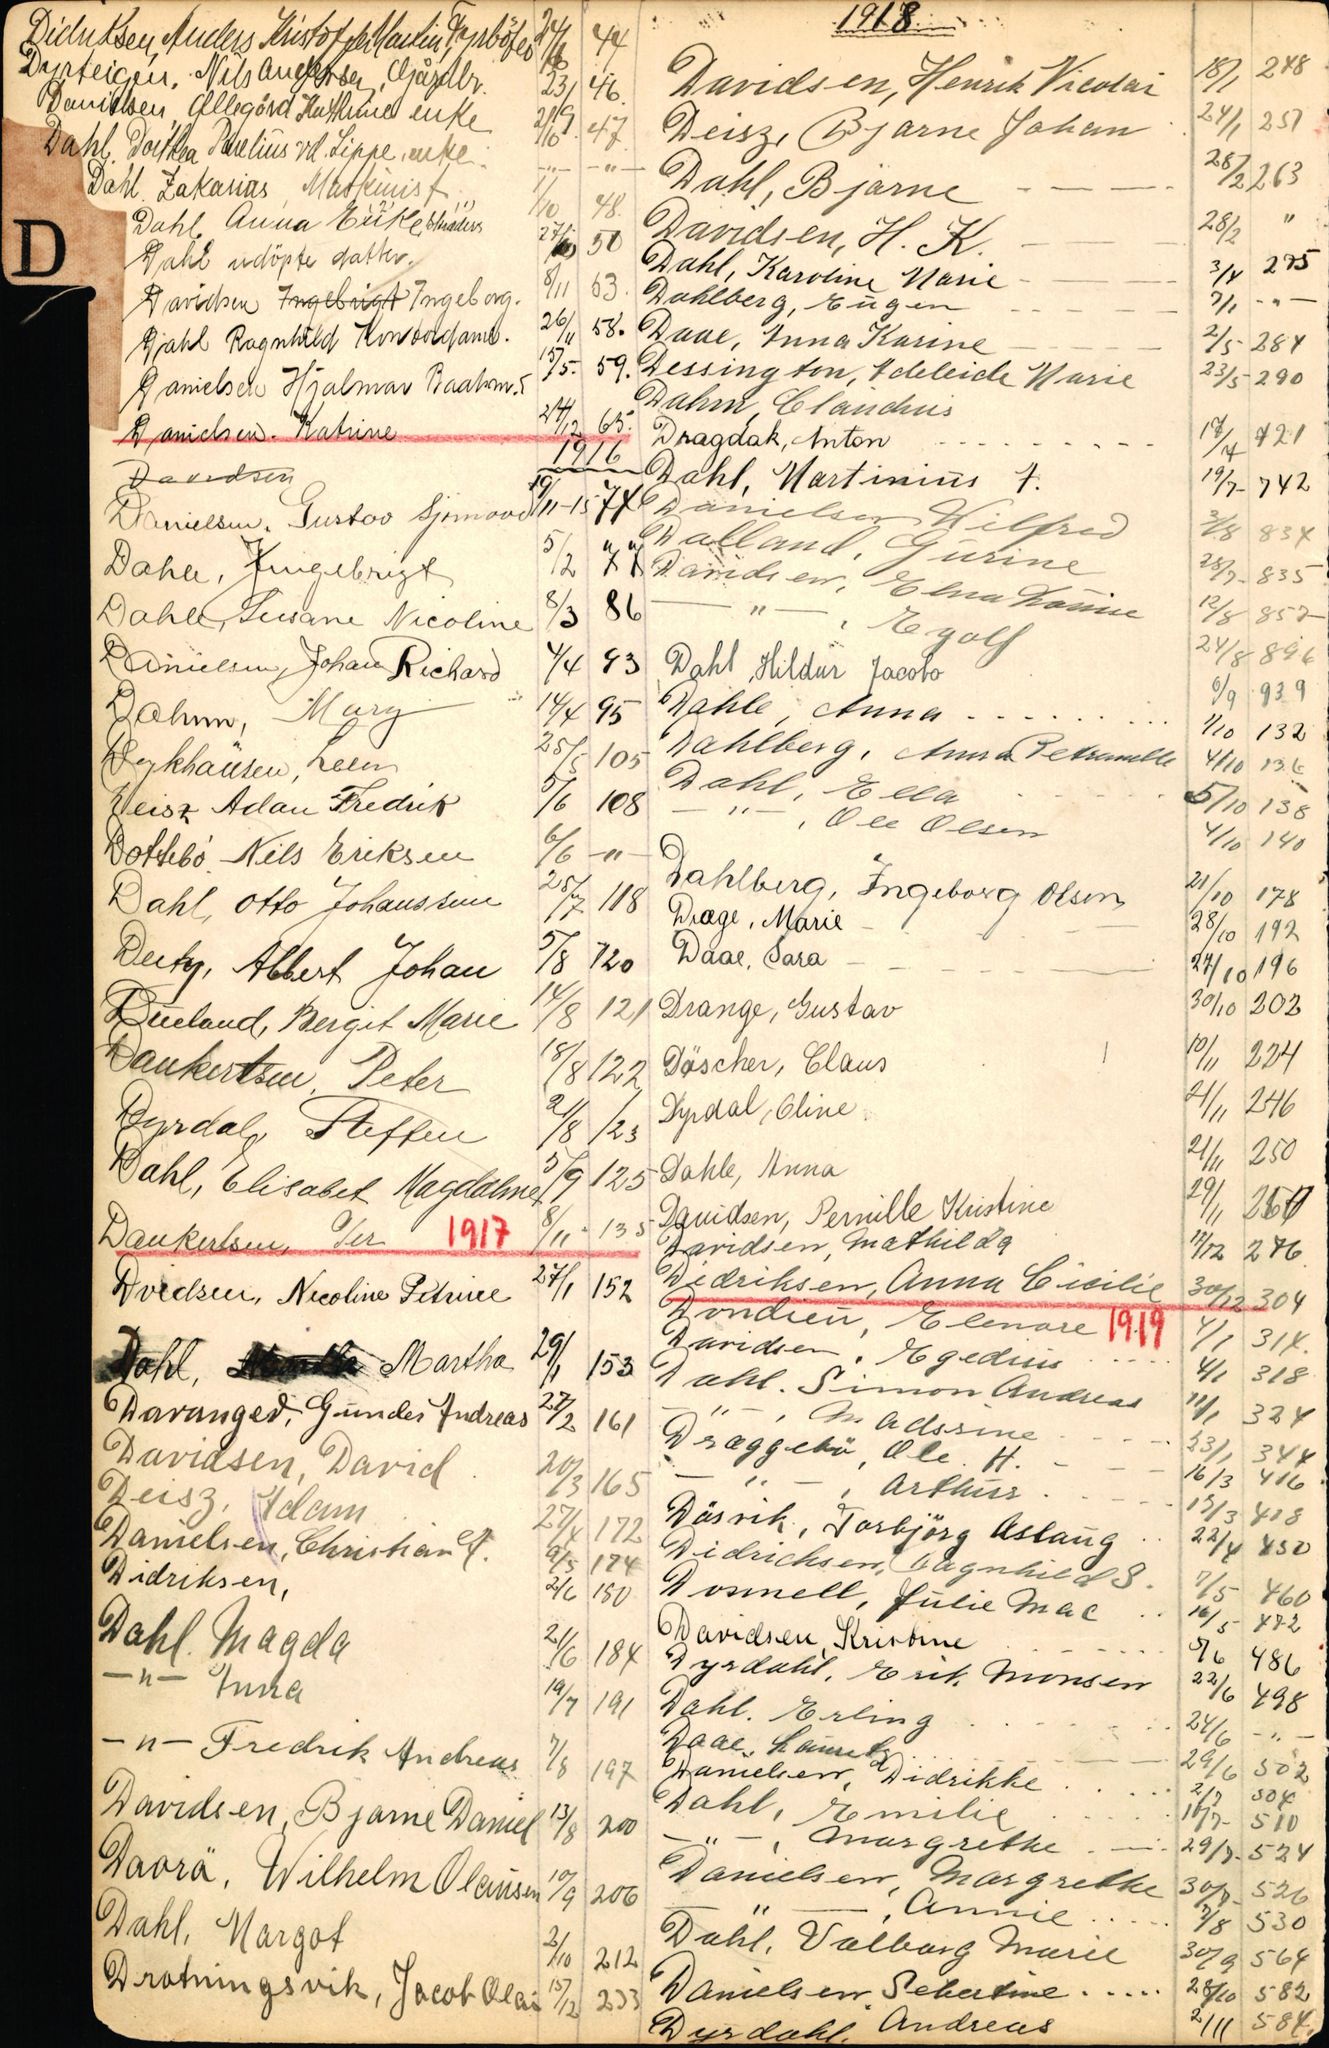 Didriksen, Anders Kristoffer Martin, Fyrböter 24/6 44
Dyrteigen, Nils Andersen, Gårdbr. 23/ 46.
Danielsen, Allegörd Kathrine enke 21/9 47
Dahl, Dorthea Paulius vd. Lippe, enke. -"- -"-
Dahl, Zakarias, Maskinist 1/10 48.
Dahl, Anna Enke, 50
Dahl udöpte datter.
Davidsen Ingebrigt Ingeborg. 8/11 53.
Dahl Ragnhild Kontordame. 26/11 58.
Danielsen Hjalmar Baadsm. 15/5. 59.
Danielsen. Katrine 24/12 65.
1916
Davidsen
Danielsen, Gustav Sjomand 19/11-15 74
Dahle, Ingebrigt 5/2 77
Dahle, Susane Nicoline 8/3 86
Danielsen, Johan Richard 4/4 93
Dahm, Mary 14/4 95
Dykhausen, Leen 25/5 105
Deisz Adan Fredrik 5/6 108
Dottebö Nils Eriksen 6/6 -"-
Dahl, Otto Johanssen 25/7 118
Deity, Albert Johan 5/8 120
Dueland, Bergit Marie 14/8 121
Dankertsen, Peter 18/8 122
Dyrdal, Steffen 21/8 123
Dahl, Elisabet Magdalene 5/9 125
Dankertsen, Per 1917 8/11 135
Dvidsen, Nicoline Petrine 27/1 152
Dahl, Martha 29/1 153
Davanger, Gunder Andreas 27/2 161
Davidsen, David 20/3 165
Deisz, Adam 27/4 172
Danielsen, Christian A. 9/5 174
Didriksen, 2/6 180
Dahl. Magda 21/6 184
-"- Anna 19/7 191
-"- Fredrik Andreas 7/8 197
Davidsen, Bjarne Daniel 13/8 200
Davrå, Wilhelm Olausen 10/9 206
Dahl, Margot 2/10 212
Drotningsvik, Jacob Olai 15/12 233
D
1918
Davidsen, Henrik Nicolai 18/1 248
Deisz, Bjarne Johan 24/1 251
Dahl, Bjarne 28/2 263
Davidsen, H. K. 28/2 "
Dahl, Karoline Marie 3/4 275
Dahlberg, Eugen 7/1 -"-
Daae, Anna Karine 2/5 284
Dessington, Adeleide Marie 23/5 290
Dahm, Claudius
Dragdak, Anton 17/4 421
Dahl, Martinius A. 19/7 742
Danielsen Wilfred 3/8 834
Dalland, Gurine 28/7 835
Davidsen, Elna 12/8 857
-"-, Egolf 24/8 896
Dahl, Hildur Jacobo 6/9 939
Dahle, Anna 1/10 132
Dahlberg, Anna Petranelle 4/10 136
Dahl, Ella 5/10 138
-"-, Ole Olsen 4/10 140
Dahlberg, Ingeborg Olsen 21/10 178
Dræge, Marie 28/10 192
Daae, Sara 27/10 196
Drange, Gustav 30/10 202
Döscher, Claus 10/11 224
Dyrdal, Oline 21/11 246
Dahle, Anna 21/11 250
Davidsen, Pernille Kristine 29/11 260
Davidsen, Mathilda 17/12 276
Didriksen, Anna Cicilie 30/12 304
Elenore 1919 4/1 314.
Davidsen, Egedius 4/1 318
Dahl. Simon Andreas 11/1 324
-"-, Madsrine 23/1 344
Dræggebö, Ole H. 16/3 416
-"-, Arthur 15/3 418
Dåsvik, Torbjörg Aslaug 22/4 450
Didrichsen, Ragnhild S. 7/5 460
Dosmell, Julie Mac 16/5 472
Davidsen, Kristine 5/6 486
Dyrdahl, Erik Monsen 22/6 498
Dahl. Erling 24/6 -"-
Daae, Lauritz 29/6 502
Danielsen, Didrikke 2/7 504
Dahl, Emilie 16/7 510
-"-, Margrethe 29/7 524
Danielsen, Margrethe 30/7 526
-"-, Annie 7/8 530
Dahl, Valborg Marie 30/9 564
Danielsen Sebertine 28/10 582
Dyrdahl, Andreas 2/11 584.